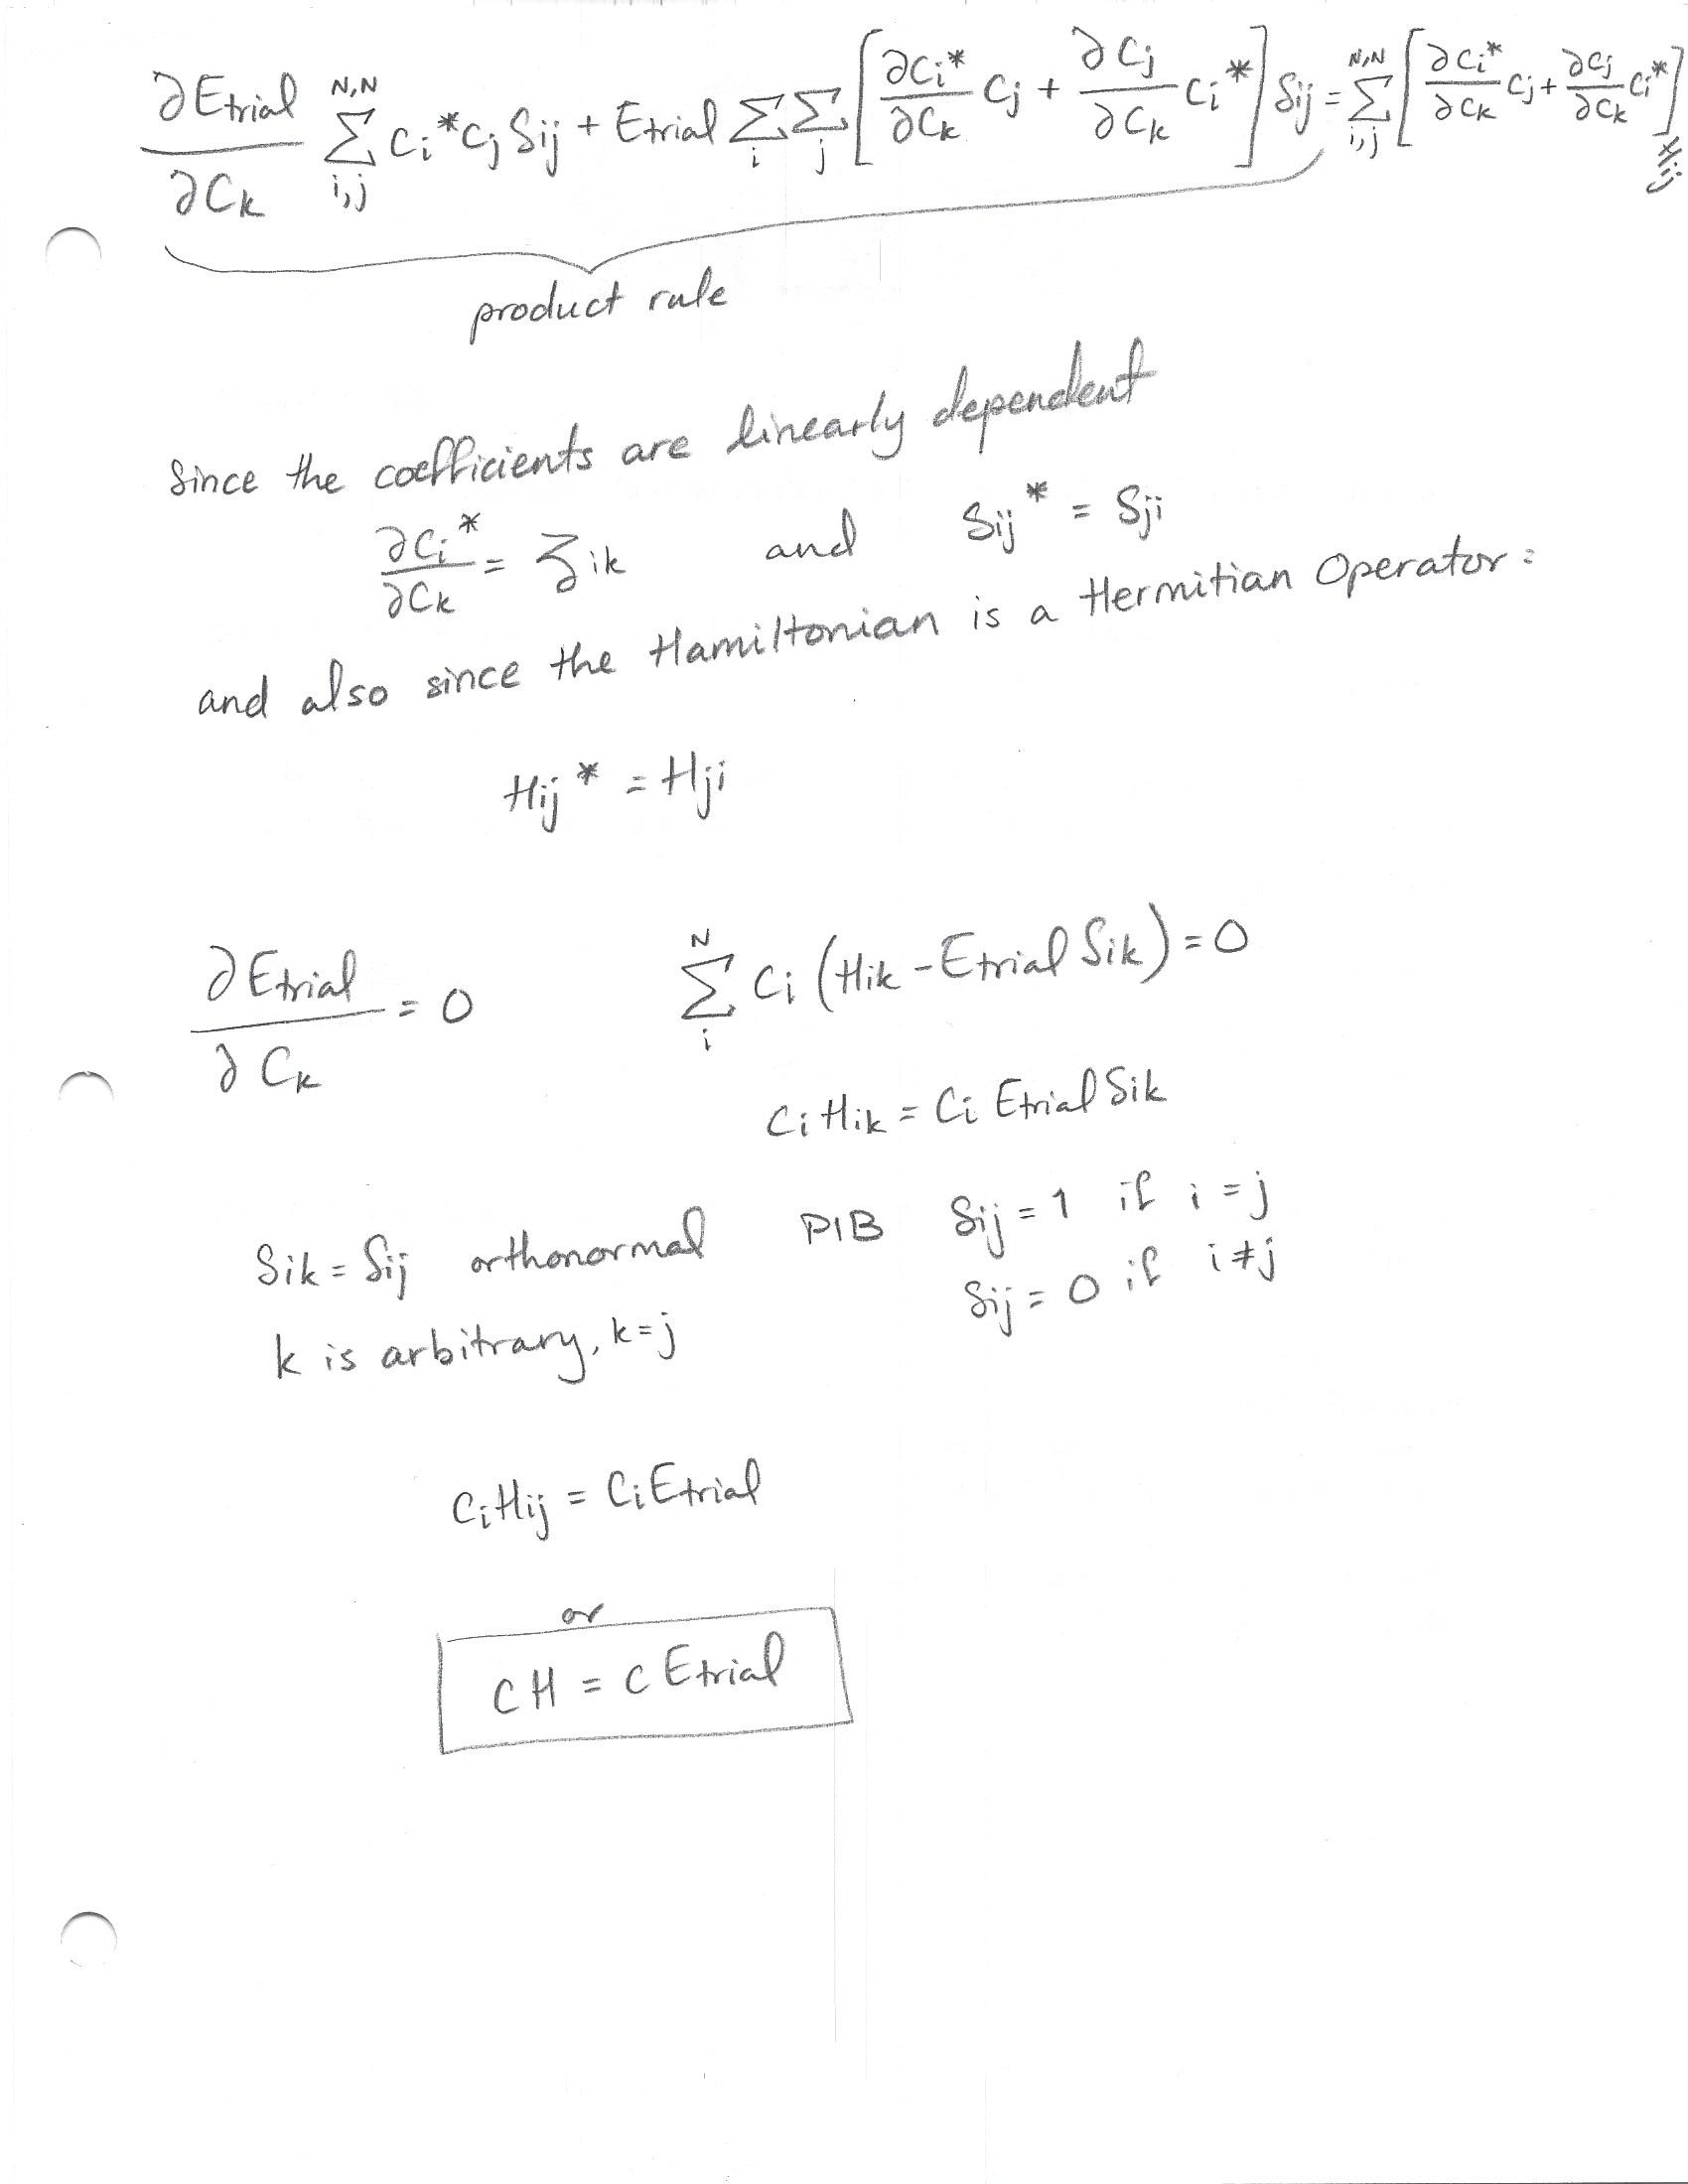 ∂Etrial/∂Ck Σ_{i,j}^{N,N} Ci*Cj Sij + Etrial Σ_i Σ_j [∂Ci*/∂Ck Cj + ∂Cj/∂Ck Ci*] Sij = Σ_{i,j}^{N,N} [∂Ci*/∂Ck Cj + ∂Cj/∂Ck Ci*] Hij
product rule
Since the coefficients are linearly dependent
∂Ci*/∂Ck = ζik and Sij* = Sji
and also since the Hamiltonian is a Hermitian Operator:
Hij* = Hji
∂Etrial/∂Ck = 0 Σ_i^N Ci (Hik - Etrial Sik) = 0
Ci Hik = Ci Etrial Sik
Sik = Sij orthonormal PIB Sij = 1 if i = j
Sij = 0 if i ≠ j
k is arbitrary, k=j
CiHij = CiEtrial
or
CH = C Etrial